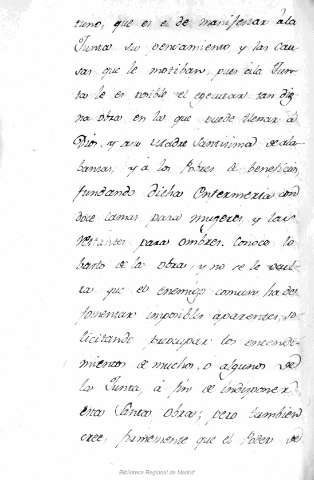 tuno, que es el de manifestar â la
Junta su pencamiento y las cau-
sas que le motiban, pues si la Jun-
ta le es posible el egecutar tan dig-
na obra en la que puede llenar â
Dios, y a su Madre Santisima de ala-
banzas, y â los Pobres de beneficios,
fundando dicha Enfermeria con
doce camas para mugeres, y las
restantes para ombres. Conoce lo
basto de la obra, y no se le ocul-
ta que el enemigo comun ha de
fomentar imposibles aparentes, so-
licitando preocupar los entendi-
mientos de muchos, o algunos de
la Junta, â fin de indisponer
esta Santa Obra; pero tambien
cree firmemente que el Poder de
Biblioteca Regional de Madrid